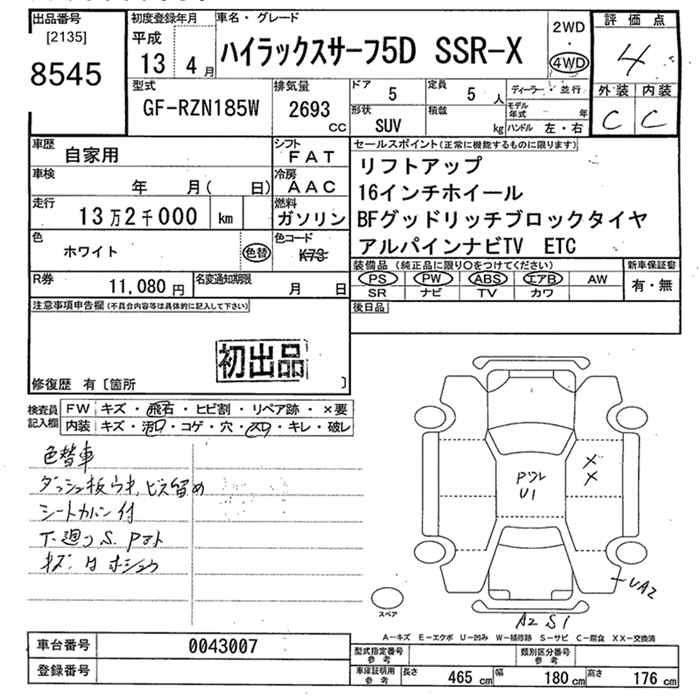 出品番号 初度登録年月 車名・グレード
[2135]
8545
平成
13 4月
ハイラックスサーフ5D SSR-X
2WD
・
4WD
評価点
4
外装 内装
C C
型式
GF-RZN185W
排気量
2693
CC
ドア
5
定員
5 人
ディーラー・並行
形状
SUV
積載
kg
モデル年式 年
ハンドル 左・右
車歴
自家用
シフト
FAT
車検
年 月( 日)
冷房
AAC
走行
13万2千000 km
燃料
ガソリン
色
ホワイト
色替
色コード
K73
R券
11,080円
名変通知期限
月 日
セールスポイント(正常に機能するものに限ります)
リフトアップ
16インチホイール
BFグッドリッチブロックタイヤ
アルパインナビTV ETC
装備品(純正品に限り○をつけてください)
新車保証書
PS PW ABS エアB AW
SR ナビ TV カワ
有・無
注意事項申告欄(不具合内容等は具体的に記入して下さい)
後日品
初出品
修復歴 有〔箇所 〕
検査員記入欄
FW キズ・飛石・ヒビ割・リペア跡・×要
内装 キズ・汚れ・コゲ・穴・スレ・キレ・破レ
色替車
ダッシュ板ウキ、ビス留め
シートカバー付
下廻り S. Pマト
キズ: 
PタレU1
×
×
UA2
A2 S1
スペア
A－キズ E－エクボ U－凹み W－補修跡 S－サビ C－腐食 XX－交換済
車台番号
0043007
登録番号
型式指定番号
参考
類別区分番号
参考
車庫証明用
参考
長さ 465 cm 幅 180 cm 高さ 176 cm